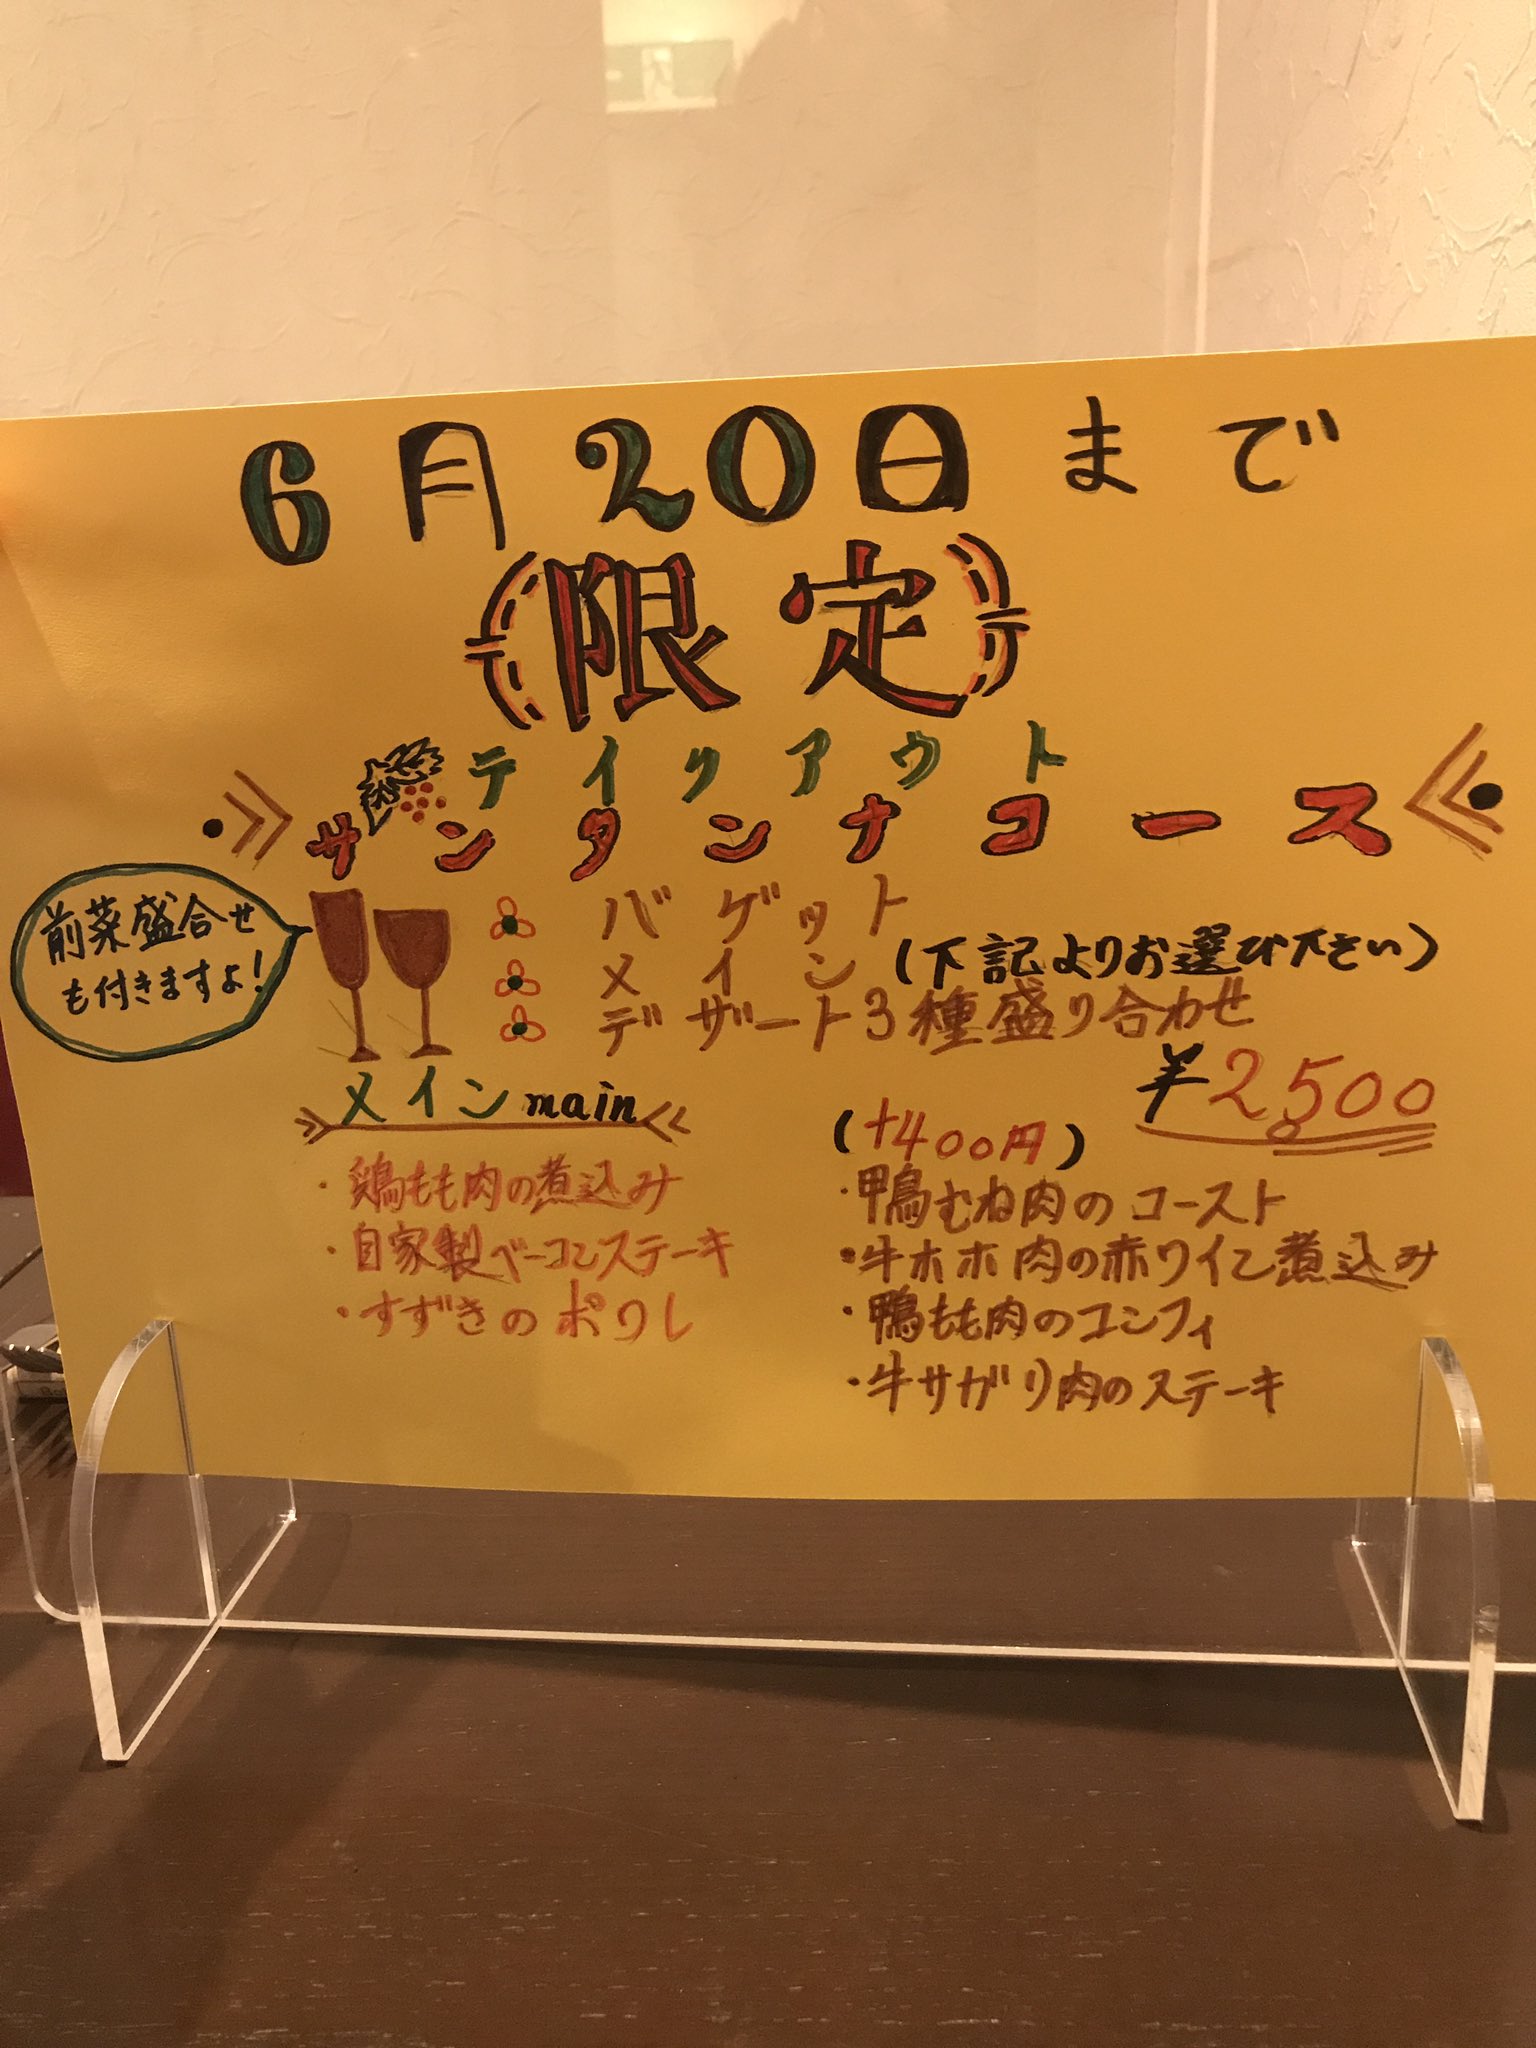 6月20日まで
限定
テイクアウト
サンタンナコース
前菜盛合せ
も付きますよ!
バゲット
メイン(下記よりお選び下さい)
デザート3種盛り合わせ
¥2500
メイン main
・鶏もも肉の煮込み
・自家製ベーコンステーキ
・すずきのポワレ
(+400円)
・鴨むね肉のロースト
・牛ホホ肉の赤ワイン煮込み
・鴨もも肉のコンフィ
・牛サガリ肉のステーキ